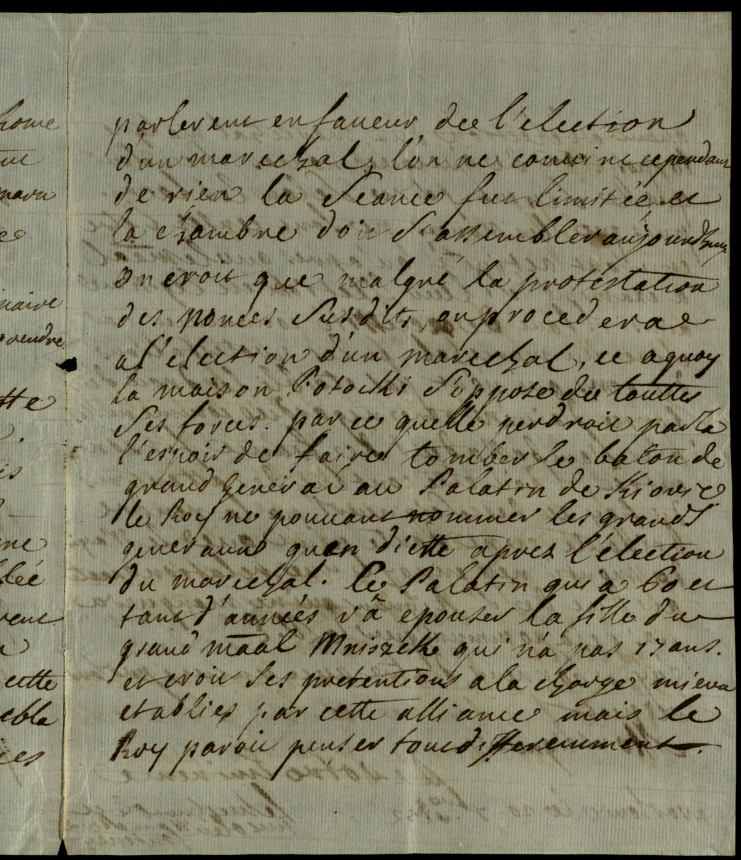 parlerent en faveur de l'election
d'un marechal, l'on ne convint cependant
de rien la Séance fut limitée et
la chambre doit s'assembler aujourdhuy
on croit que malgré la protestation
des nonces Susdits, on procedera
a l'élection d'un marechal, ce a quoy
la maison Potocki S'oppose de touttes
Ses forces. par ce quelle perdroit par la
l'espoir de faire tomber le baton de
grand general au Palatin de Kiovie
le Roy ne pouvant nommer les grands
generaux quen diette aprez l'élection
du marechal. le Palatin qui a 60 et
tant d'années và epouser la fille du
grand maal Mniszek qui n'a pas 17 ans.
et croit Ses pretentions a la charge mieux
etablies par cette alliance mais le
Roy paroit penser tout differemment.